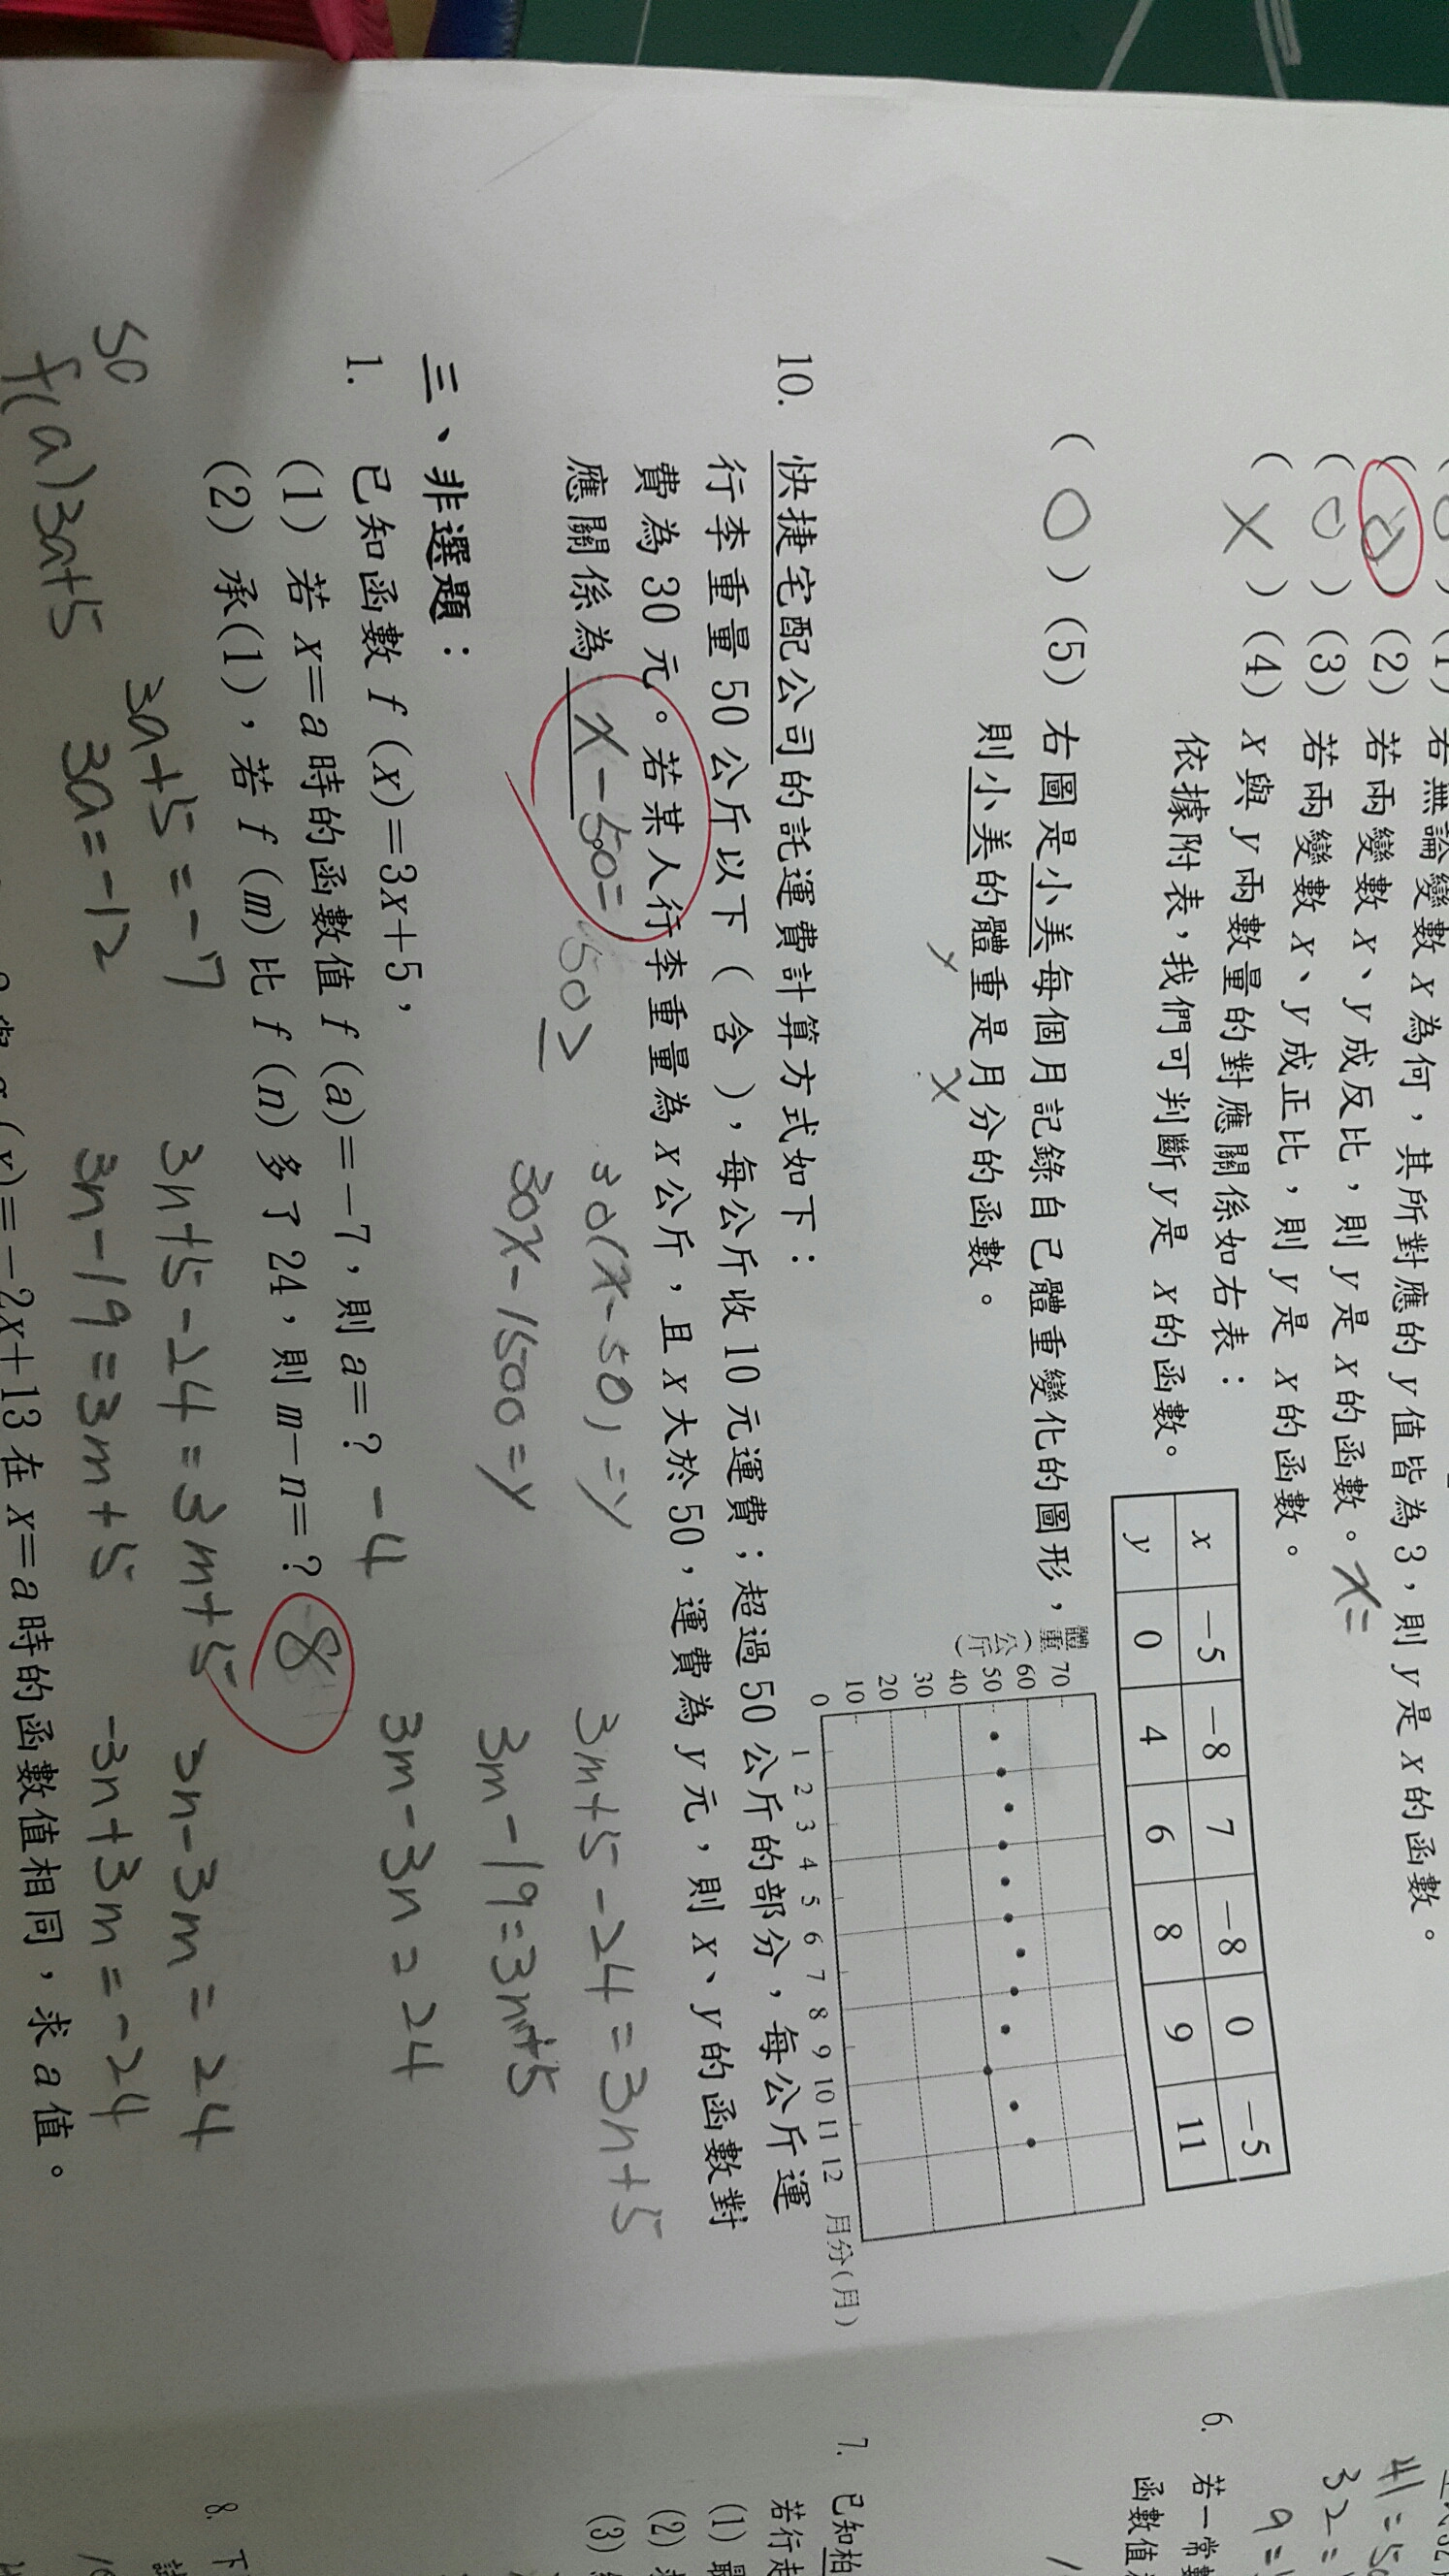 (1) 若無論變數 x 為何，其所對應的 y 值皆為 3，則 y 是 x 的函數。
(2) 若兩變數 x、y 成反比，則 y 是 x 的函數。 x=
( O ) (3) 若兩變數 x、y 成正比，則 y 是 x 的函數。
( X ) (4) x 與 y 兩數量的對應關係如右表：
依據附表，我們可判斷 y 是 x 的函數。
x −5 −8 7 −8 0 −5
y 0 4 6 8 9 11
( O ) (5) 右圖是小美每個月記錄自己體重變化的圖形，
則小美的體重是月分的函數。
y x
體重(公斤)
70
60
50
40
30
20
10
0
1 2 3 4 5 6 7 8 9 10 11 12 月分(月)
10. 快捷宅配公司的託運費計算方式如下：
行李重量 50 公斤以下（含），每公斤收 10 元運費；超過 50 公斤的部分，每公斤運
費為 30 元。若某人行李重量為 x 公斤，且 x 大於 50，運費為 y 元，則 x、y 的函數對
應關係為 x-50=
30(x-50)=y
30x-1500=y
3m+5-24=3n+5
3m-19=3n+5
3m-3n=24
三、非選題：
1. 已知函數 f (x)=3x+5，
(1) 若 x=a 時的函數值 f (a)=−7，則 a=？ -4
(2) 承(1)，若 f (m) 比 f (n) 多了 24，則 m−n=？ 8
3a+5=-7
3n+5-24=3m+5
3n-3m=24
50
3a=-12
3n-19=3m+5
-3n+3m=-24
f(a)3a+5
(x)=−2x+13 在 x=a 時的函數值相同，求 a 值。
6. 若一常數
函數值
7. 已知柏
若行走
(1)
(2)
(3)
8. 下